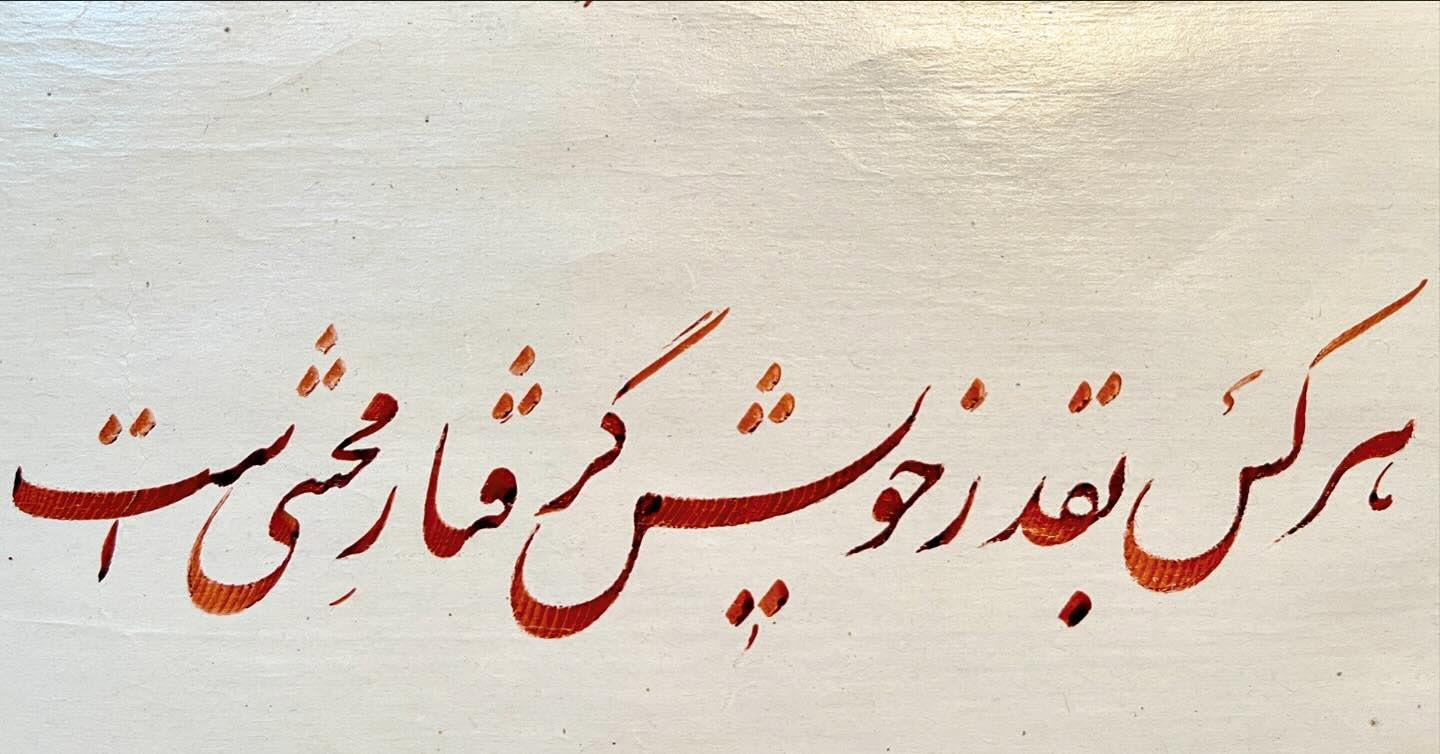 هر کس بقدر خویش گرفتارِ محنتی است